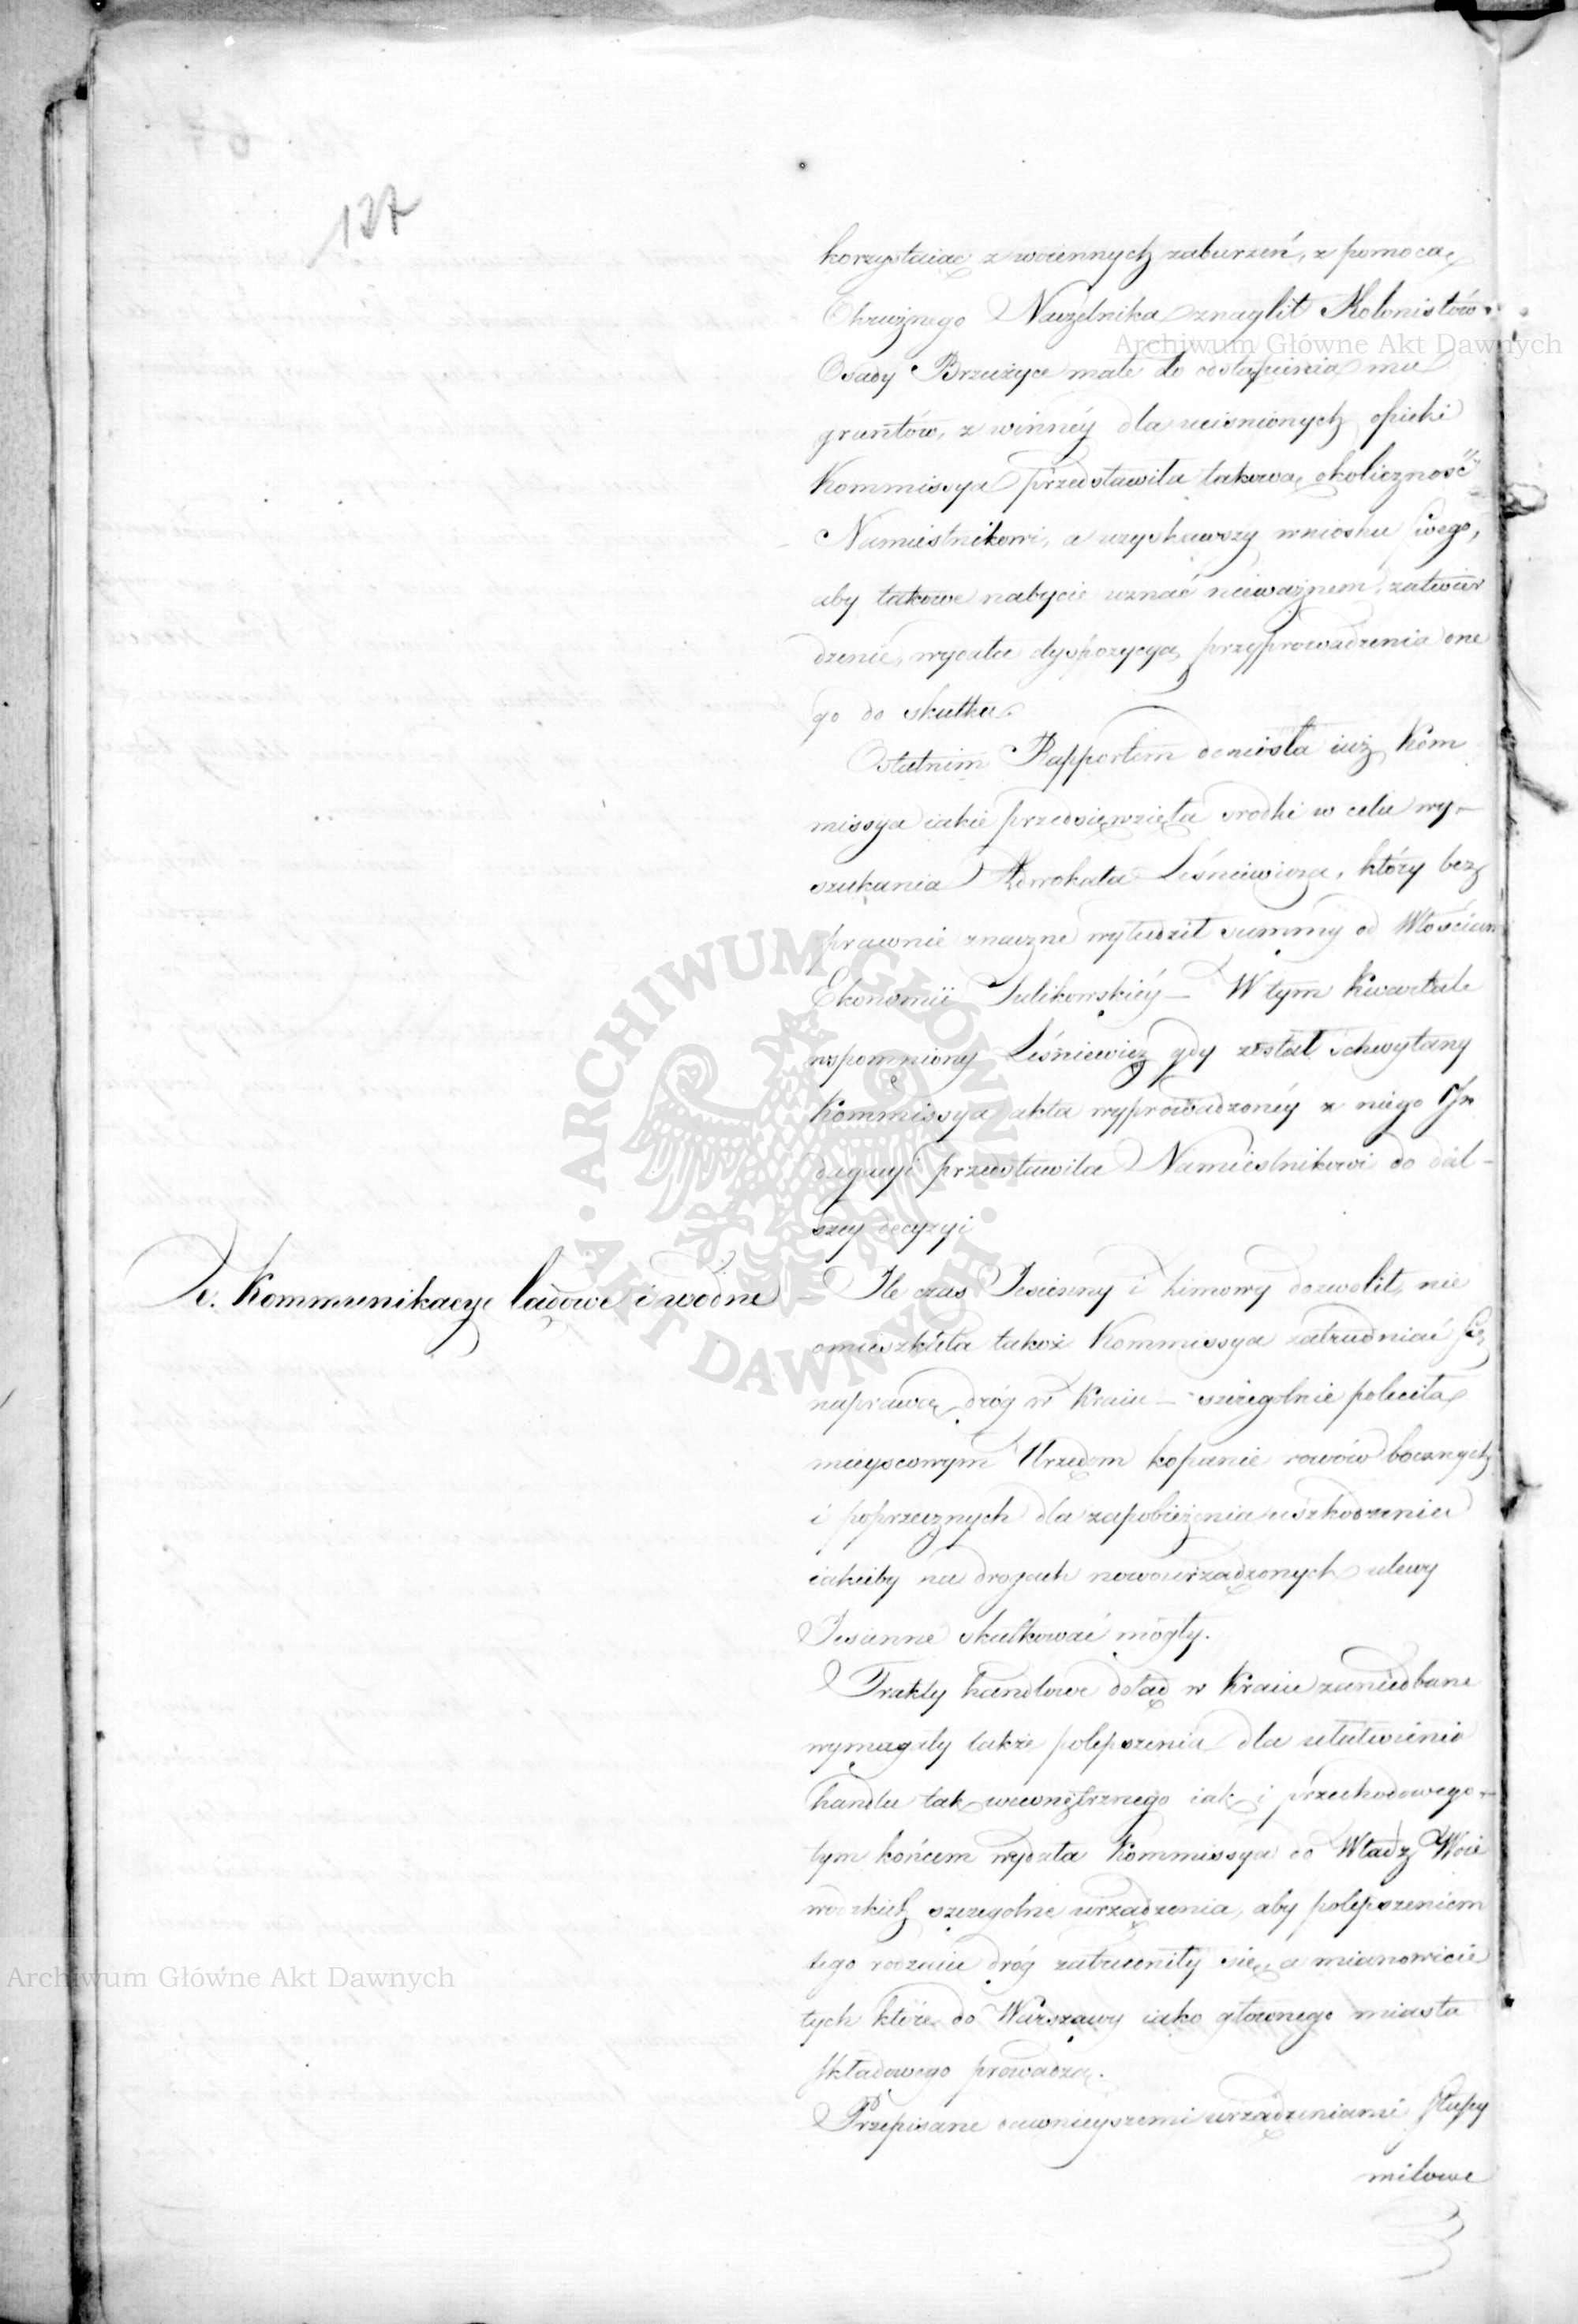 137
korzystaiąc z woiennych zaburzeń, z pomocą
Okrężnego Naczelnika znaglił Kolonistów
Osady Brzeżyce małe do odstąpienia mu
gruntów, z winnéy dla uciśnionych opieki
Kommissya przedstawiła takową okoliczność
Namiestnikowi, a uzyskawszy wniosku swego,
aby takowe nabycie uznać nieważnem, zatwier
dzenie, wydała dyspozycyą przyprowadzenia one
go do skutku.
Ostatnim Rapportem doniosła iuż Kom
missya iakie przedsięwzięła srodki w celu wy-
szukania Adwokata Leśniewicza, który bez
prawnie znaczne wyłudził summy od Włościan
Ekonomii Sulikowskiéy – W tym Kwartale
wspomniony Leśniewicz gdy został schwytany
Kommissya akta wyprowadzonéy z niego In
dagacyi przedstawiła Namiestnikowi do dal-
szey decyzyi
Kommunikacye lądowe i wodne
Ile czas Jesienny i zimowy dozwolił, nie
omieszkała takoż Kommissya zatrudniać się
naprawą dróg w Kraiu – szczególnie poleciła
mieyscowym Urzędom kopanie rowów bocznych
i poprzecznych dla zapobieżenia uszkodzeniu
iakieby na drogach nowourządzonych ulewy
Jesienne skutkować mogły.
Trakty handlowe dotąd w Kraiu zaniedbane
wymagały także polepszenia dla ułatwienia
handlu tak wewnętrznego iak i przechodowego –
tym końcem wydała Kommissya do Władz Woie
wodzkich szczególne urządzenia, aby polepszeniem
tego rodzaiu dróg zatrudniły się, a mianowicie
tych które do Warszawy iako głównego miasta
składowego prowadzą.
Przepisane dawnieyszemi urządzeniami słupy
milowe
Archiwum Główne Akt Dawnych
Archiwum Główne Akt Dawnych
ARCHIWUM GŁÓWNE AKT DAWNYCH